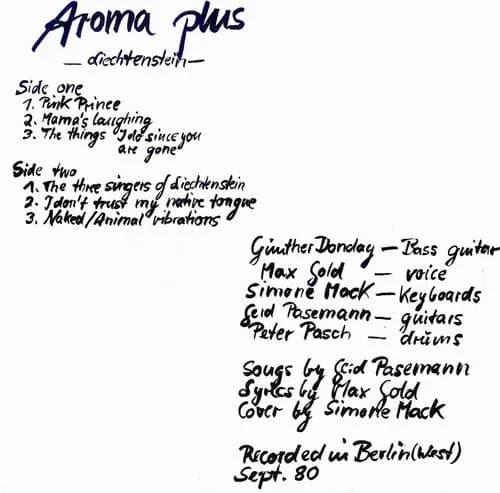 Aroma plus
— Liechtenstein —
Side one
1. Pink Prince
2. Mama's laughing
3. The things I do since you
are gone
Side two
1. The three singers of Liechtenstein
2. I don't trust my native tongue
3. Naked/Animal vibrations
Günther Donday — Bass guitar
Max Gold — voice
Simone Mack — Keyboards
Seid Pasemann — guitars
Peter Pasch — drums
Songs by Seid Pasemann
Lyrics by Max Gold
Cover by Simone Mack
Recorded in Berlin (West)
Sept. 80